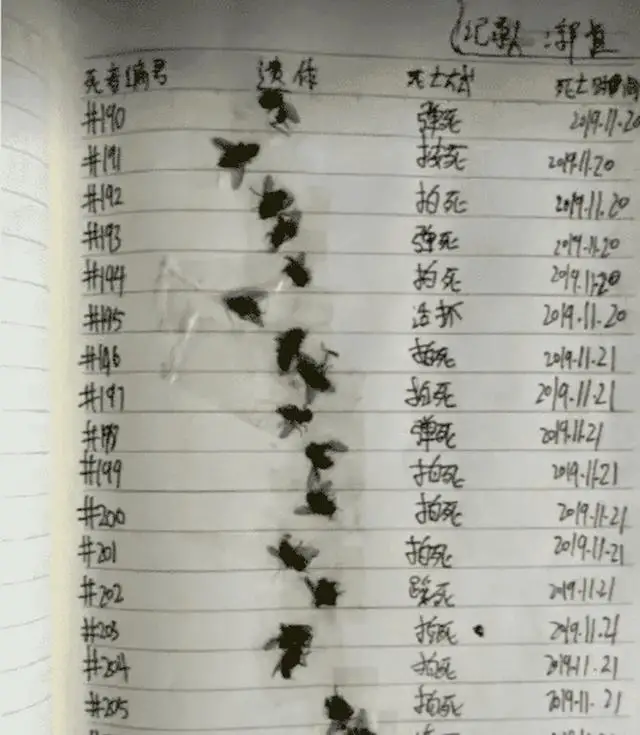 记录人:郭
死者编号 遗体 死亡方式 死亡时间
#190 弹死 2019.11.20
#191 拍死 2019.11.20
#192 拍死 2019.11.20
#193 弹死 2019.11.20
#194 拍死 2019.11.20
#195 活抓 2019.11.20
#196 拍死 2019.11.21
#197 拍死 2019.11.21
#198 弹死 2019.11.21
#199 拍死 2019.11.21
#200 拍死 2019.11.21
#201 拍死 2019.11.21
#202 踩死 2019.11.21
#203 拍死 2019.11.21
#204 拍死 2019.11.21
#205 拍死 2019.11.21